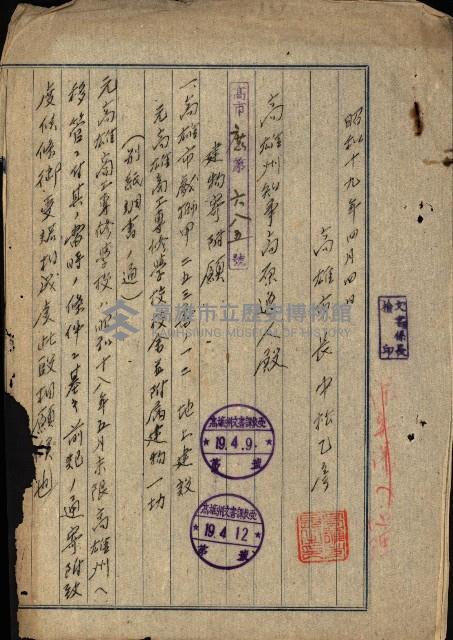 昭和十九年四月四日
高雄市長 中松乙彦
文書係長
檢印
高雄州知事高原逸人殿
高市 第六八五號
建物寄附願
一、高雄市獻 甲二五三 地上建設
元高雄商工專修學校校舍並附屬建物一切
(別紙調書ノ通)
元高雄商工專修學校ハ昭和十八年五月末限高雄州ヘ
移管 當時ノ條件ニ基キ前記ノ通寄附致
度候條御受 相成度此段相願候也
高雄州文書課收受
19.4.9.
19.4.12
高雄市立歷史博物館
KAOHSIUNG MUSEUM OF HISTORY